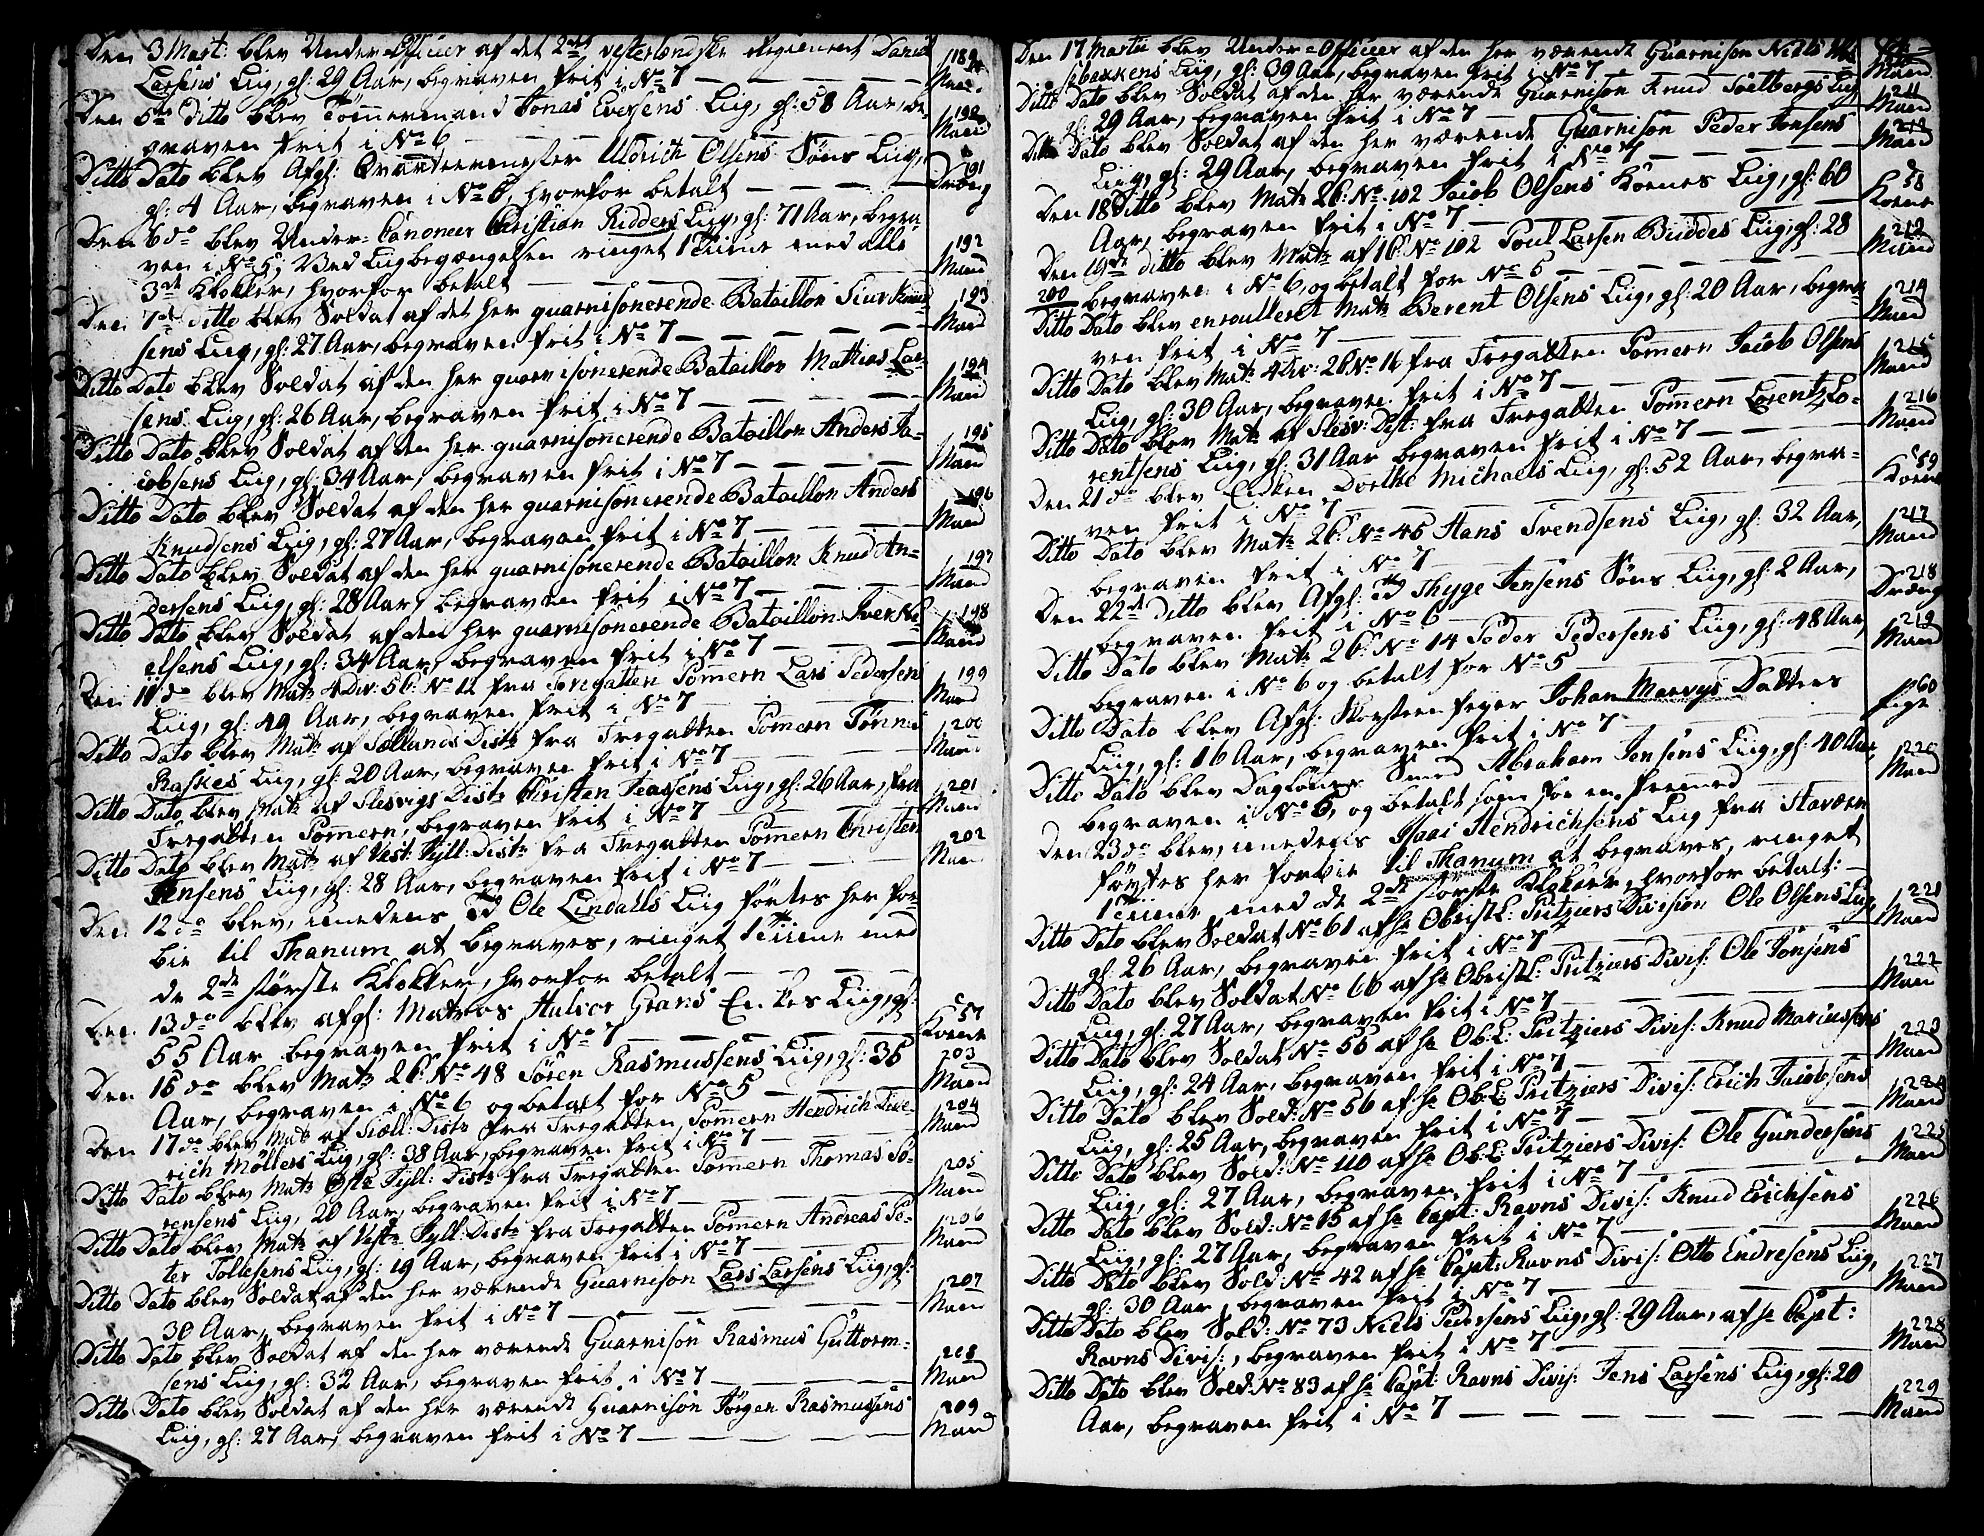 Den 3 Mart: blev Under Officier af det 2det Vesterlendske Regiment Daniel
Larsens Liig, gl: 29 Aar, begraven frit i No 7 — — — —
189 Mand
Den 5te Ditto blev Tømmermand Jonas Evensens Liig, gl: 58 Aar, be-
graven frit i No 6 — — — —
190 Mand
Ditto Dato blev Afgl: Qvarteermester Uldrich Olsens Søns Liig,
gl: 4 Aar, begraven i No 6, hvorfor betalt — — — —
191 Dræng
Den 6 do blev Under-Canoneer Christian Ridders Liig, gl: 71 Aar, begra-
ven i No 5; Ved Liigbegængelsen ringet 1 Tiime med alle
3de Klokker, hvorfor betalt — — — —
192 Mand
Den 7de Ditto blev Soldat af det her guarnisonerende Bataillon Siur Knud-
sens Liig, gl: 27 Aar, begraven frit i No 7 — — — —
193 Mand
Ditto Dato blev Soldat af den her guarnisonerende Bataillon Mathias Lar-
sens Liig, gl: 26 Aar, begraven frit i No 7 — — — —
194 Mand
Ditto Dato blev Soldat af den her guarnisonerende Bataillon Anders Ja-
cobsens Liig, gl: 34 Aar, begraven frit i No 7 — — — —
195 Mand
Ditto Dato blev Soldat af den her guarnisonerende Bataillon Anders
Knudsens Liig, gl: 27 Aar, begraven frit i No 7 — — — —
196 Mand
Ditto Dato blev Soldat af den her guarnisonerende Bataillon Knud An-
dersens Liig, gl: 28 Aar, begraven frit i No 7 — — — —
197 Mand
Ditto Dito blev Soldat af den her guarnisonerende Bataillon Iver Ni-
elsens Liig, gl: 34 Aar, begraven frit i No 7 — — — —
198 Mand
Den 10 do blev Mats 4 Div: 5 C: No 12 fra Fregatten Pomern Lars Pedersens
Liig, gl: 44 Aar, begraven frit i No 7 — — — —
199 Mand
Ditto Dato blev Mats af Siællands Distr fra Fregatten Pomern Tønnes
Raskes Liig, gl: 20 Aar, begraven frit i No 7 — — — —
200 Mand
Ditto Dato blev Mats af Slesvigs Distr Christen Jeassens Liig, gl: 26 Aar, fra
Fregatten Pomern, begraven frit i No 7 — — — —
201 Mand
Ditto Dato blev Mats af Vest: Jyll: Distr fra Fregatten Pomern Christen
Jensens Liig, gl: 28 Aar, begraven frit i No 7 — — — —
202 Mand
Den 12 do blev, imedens Ole Lindahls Liig førtes her for-
bie til Thanum at begraves, ringet 1 Tiime med
de 2de største Klokker, hvorfor betalt — — — —
Den 13 do blev afgl: Matros Halvor Grans Enkes Liig, gl:
55 Aar begraven frit i No 7 — — — —
57 Kone
Den 16 do blev Mats 2 C: No 48 Søren Rasmussens Liig, gl: 36
Aar, begraven i No 6 og betalt for No 5 — — — —
203 Mand
Den 17 do blev Mats af Siæll: Distr fra Fregatten Pomern Hendrich Died-
rich Møllers Liig, gl: 38 Aar, begraven frit i No 7 — — — —
204 Mand
Ditto Dato blev Mats Øste Jyll: Distr fra Fregatten Pomern Thomas Sø-
rensens Liig, 20 Aar, begraven frit i No 7 — — — —
205 Mand
Ditto Dato blev Mats af Veste Jyll: Distr fra Fregatten Pomern Andreas Pe-
ter Tollesens Liig, gl: 19 Aar, begraven frit i No 7 — — — —
206 Mand
Ditto Dato blev Soldat af den her værende Guarnison Lars Larsens Liig, gl:
30 Aar, begraven frit i No 7 — — — —
207 Mand
Ditto Dato blev Soldat af den her værende Guarnison Rasmus Guttorm-
sens Liig, gl: 32 Aar, begraven frit i No 7 — — — —
208 Mand
Ditto Dato blev Soldat af den her værende Guarnison Jørgen Rasmussens
Liig, gl: 27 Aar, begraven frit i No 7 — — — —
209 Mand
Den 17 Martii blev Under-Officeer af den her værende Guarnison Niels
Liig, gl: 39 Aar, begraven frit i No 7
Mand
Ditto Dato blev Soldat af den her værende Guarnison Knud Soelbergs Liig
gl: 29 Aar, begraven frit i No 7 — — — —
211 Mand
Ditto Dato blev Soldat af den her værende Guarnison Peder Jensens
Liig, gl: 29 Aar, begraven frit i No 7 — — — —
212 Mand
Den 18 Ditto blev Mats 2 C: No 102 Jacob Olsens Kones Liig, gl: 60
Aar, begraven frit i No 7 — — — —
58 Kone
Den 19de ditto blev Mats af 1 C: No 102 Poul Larsen Buddes Liig, gl: 28
200 begraven i No 6, og betalt for No 5 — — — —
213 Mand
Ditto Dato blev enroulleret Mats Berent Olsens Liig, gl: 20 Aar, begra-
ven frit i No 7 — — — —
214 Mand
Ditto Dato blev Mats 4 Div: 2 C No 16 fra Fregatten Pomern Jacob Olsens
Liig, gl: 30 Aar, begraven frit i No 7 — — — —
215 Mand
Ditto Dato blev Mats af Slesv: Dist: fra Fregatten Pomern Lorentz Lo-
rentsens Liig, gl: 31 Aar begraven frit i No 7 — — — —
216 Mand
Den 21 do blev Enken Dorthe Michaels Liig, gl: 52 Aar, begra-
ven frit i No 7 — — — —
59 Kone
Ditto Dato blev Mats 2 C: No 45 Hans Svendsens Liig, gl: 32 Aar,
begraven frit i No 7 — — — —
217 Mand
Den 22de Ditto blev Afgl: Thyge Jensens Søns Liig, gl: 2 Aar,
begraven frit i No 6 — — — —
218 Dræng
Ditto Dato blev Mats 2 C: No 14 Peder Pedersens Liig, gl: 48 Aar,
begraven i No 6 og betalt for No 5 — — — —
219 Mand
Ditto Dato blev Afgl: Skorsteenfeyer Johan Maevys Datters
Liig, gl: 16 Aar, begraven frit i No 7 — — — —
60 Pige
Ditto Dato blev Dagløns Smed Abraham Jensens Liig, gl: 40 Aar,
begraven i No 6, og betalt som for en fremmed — — — —
220 Mand
Den 23 do blev, imedens Isaac Hendrichsens Liig fra Staværn
førtes her forbie til Thanum at begraves, ringet
1 Tiime med de 2de største Klokker, hvorfor betalt: —
Ditto Dato blev Soldat No 61 af Hr Obristl: Pritziers Division Ole Olsens Liig
gl: 26 Aar, begraven frit i No 7 — — — —
221 Mand
Ditto Dato blev Soldat No 66 af Hr Obristl: Pritziers Divis: Ole Jonsens
Liig, gl: 27 Aar, begraven frit i No 7 — — — —
222 Mand
Ditto Dato blev Soldat No 55 af Hr Ob:L: Pritziers Divis: Knud Mariussens
Liig, gl: 24 Aar, begraven frit i No 7 — — — —
223 Mand
Ditto Dato blev Sold: No 56 af Hr Ob:L: Pritziers Divis: Erich Jacobsens
Liig, gl: 25 Aar, begraven frit i No 7 — — — —
224 Mand
Ditto Dato blev Sold: No 110 af Hr Ob:L: Pritziers Divis: Ole Gundersens
Liig, gl: 27 Aar, begraven frit i No 7 — — — —
225 Mand
Ditto Dato blev Sold: No 15 af Hr Capt: Ravns Divis: Knud Erichsens
Liig, gl: 27 Aar, begraven frit i No 7 — — — —
226 Mand
Ditto Dato blev Sold: No 42 af Hr Capt: Ravns Divis: Otto Endresens Liig,
gl: 30 Aar, begraven frit i No 7 — — — —
227 Mand
Ditto Dato blev Sold: No 73 Niels Pedersens Liig, gl: 29 Aar, af Hr Capt:
Ravns Divis:, begraven frit i No 7 — — — —
228 Mand
Ditto Dato blev Sold: No 83 af Hr Capt: Ravns Divis: Jens Larsens Liig, gl: 20
Aar, begraven frit i No 7 — — — —
229 Mand